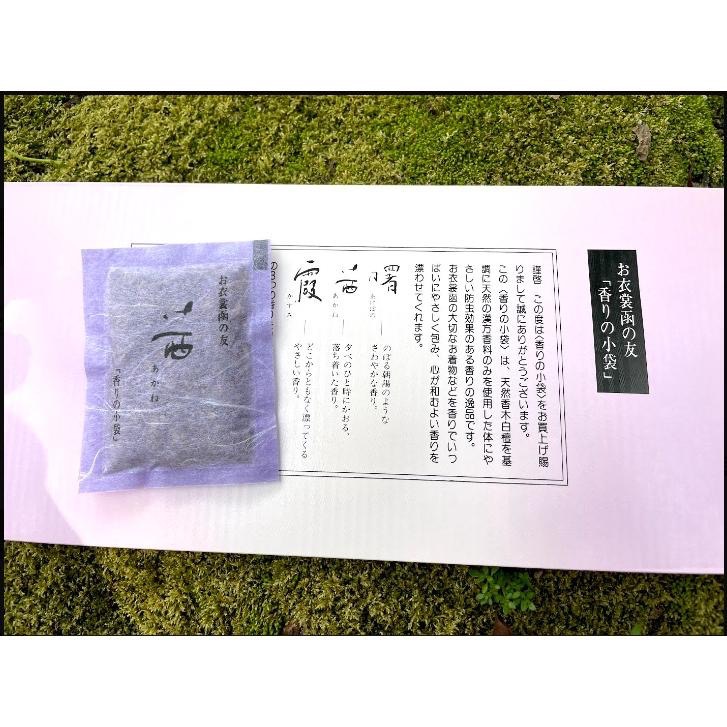 お衣裳函の友
「香りの小袋」
謹啓　この度は〈香りの小袋〉をお買上げ賜
りまして誠にありがとうございます。
この〈香りの小袋〉は、天然香木白檀を基
調に天然の漢方香料のみを使用した体にや
さしい防虫効果のある香りの逸品です。
お衣裳函の大切なお着物などを香りでいっ
ぱいにやさしく包み、心が和むよい香りを
漂わせてくれます。
曙
あけぼの
のぼる朝陽のような
さわやかな香り。
茜
あかね
夕べのひと時にかおる、
落ち着いた香り。
霞
かすみ
どこからともなく漂ってくる
やさしい香り。
お衣裳函の友
茜
あかね
「香りの小袋」